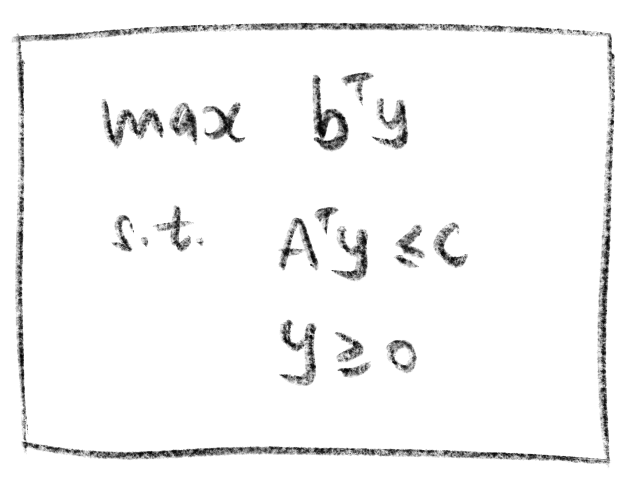 max bᵀy
s.t. Aᵀy ≤ c
y ≥ 0